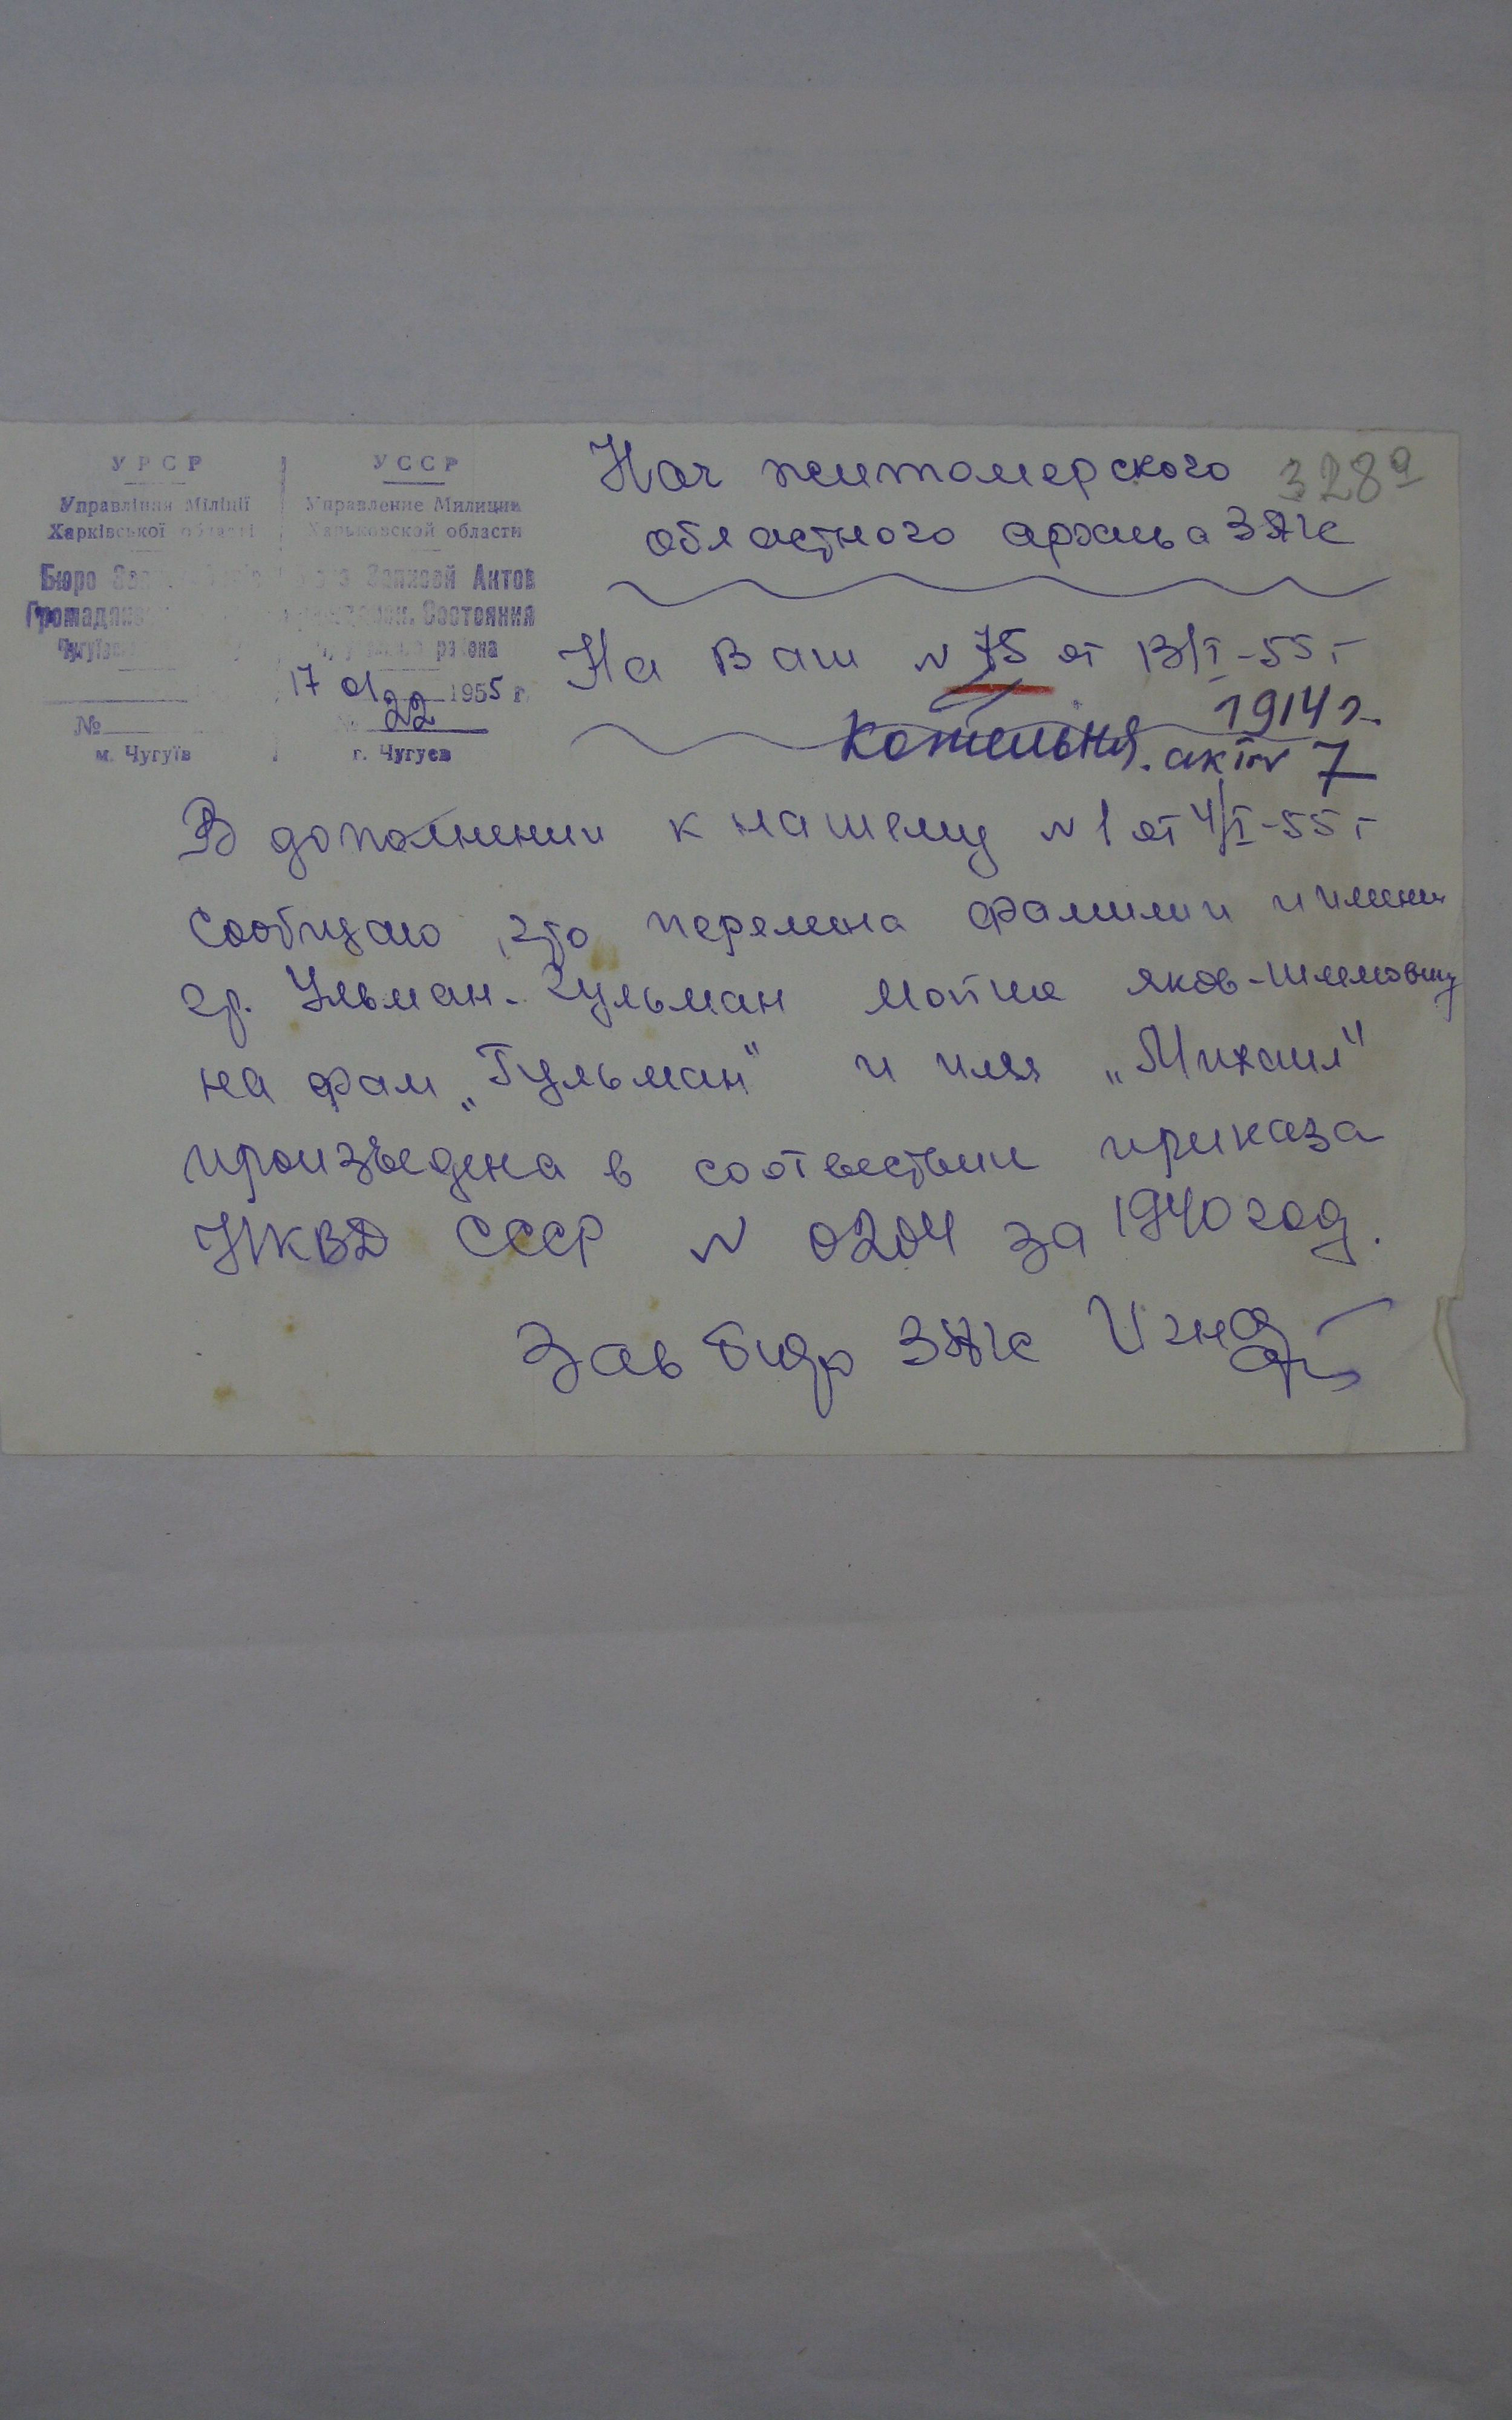 УРСР
Управління Міліції
Харківської області
Бюро
м. Чугуїв
№
УССР
Управление Милиции
Харьковской области
Записей Актов
Состояния
района
17 01 1955 г.
22
г. Чугуев
328а
Нач житомерского
областного архива ЗАГС
На Ваш N 75 от 13/I-55 г
1914 г.
Котельня. акт N 7
В дополнении к нашему N 1 от 4/I-55 г
сообщаю, что перемена фамилии и имени
гр. Ульман-Гульман Мотие Яков-Шлемовичу
на фам „Гульман" и имя „Михаил"
произведена в соответствии приказа
НКВД СССР N 0204 за 1940 год.
Зав бюро ЗАГС